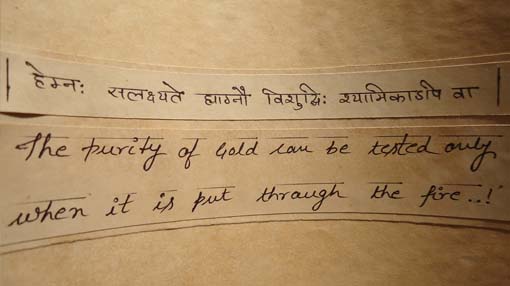 | हेम्नः सलक्ष्यते ह्याग्नौ विशुद्धिः श्यामिकाऽपि वा |
The purity of Gold can be tested only
when it is put through the fire..!